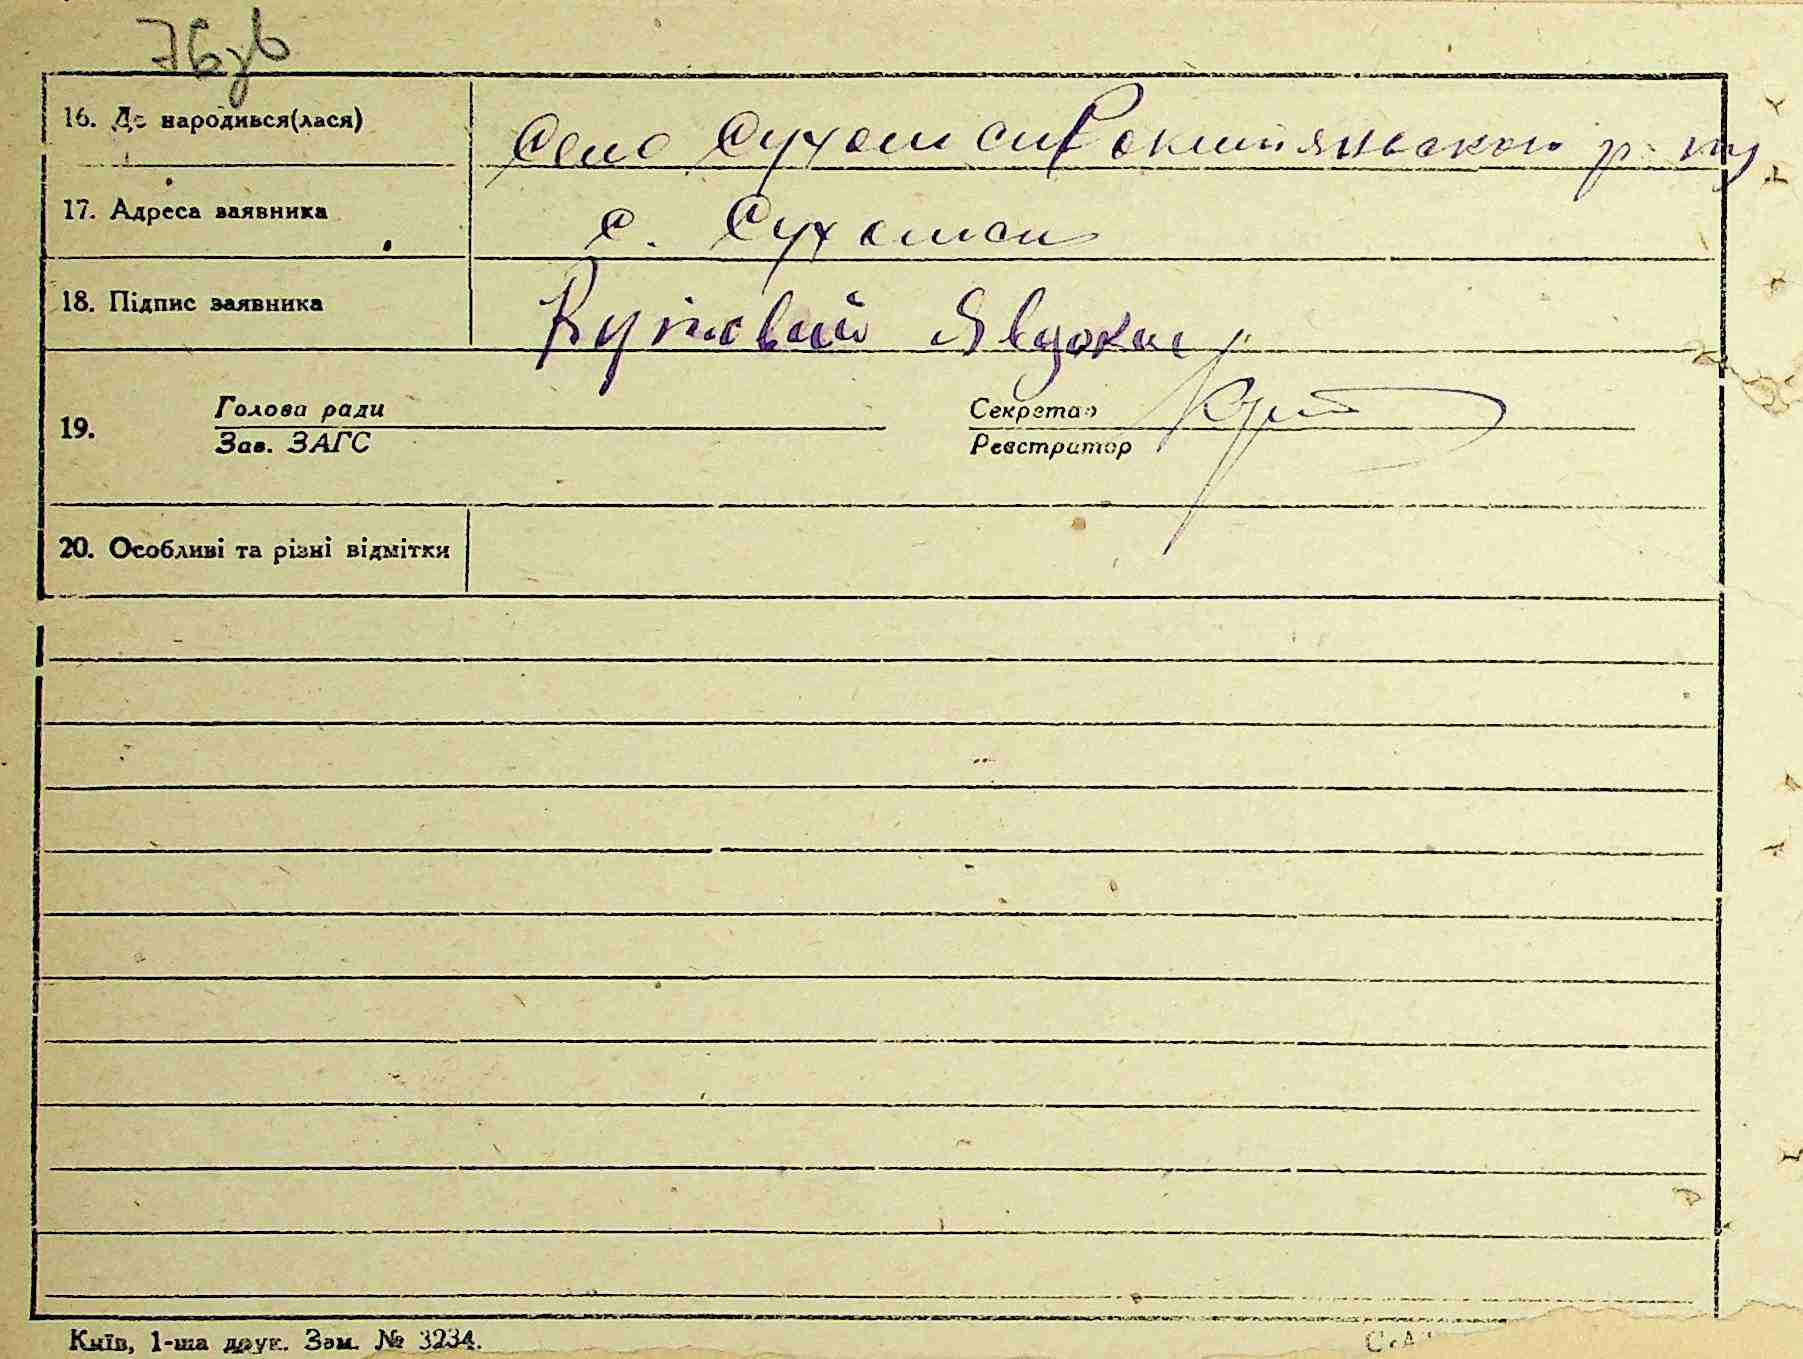 76зв
16. Де народився(лася) Село Сухолиси Рокитянського р-ну
17. Адреса заявника с. Сухолиси
18. Підпис заявника Явдоким
19. Голова ради Секретар
Зав. ЗАГС Реєстратор
20. Особливі та різні відмітки
Київ, 1-ша друк. Зам. № 3234.